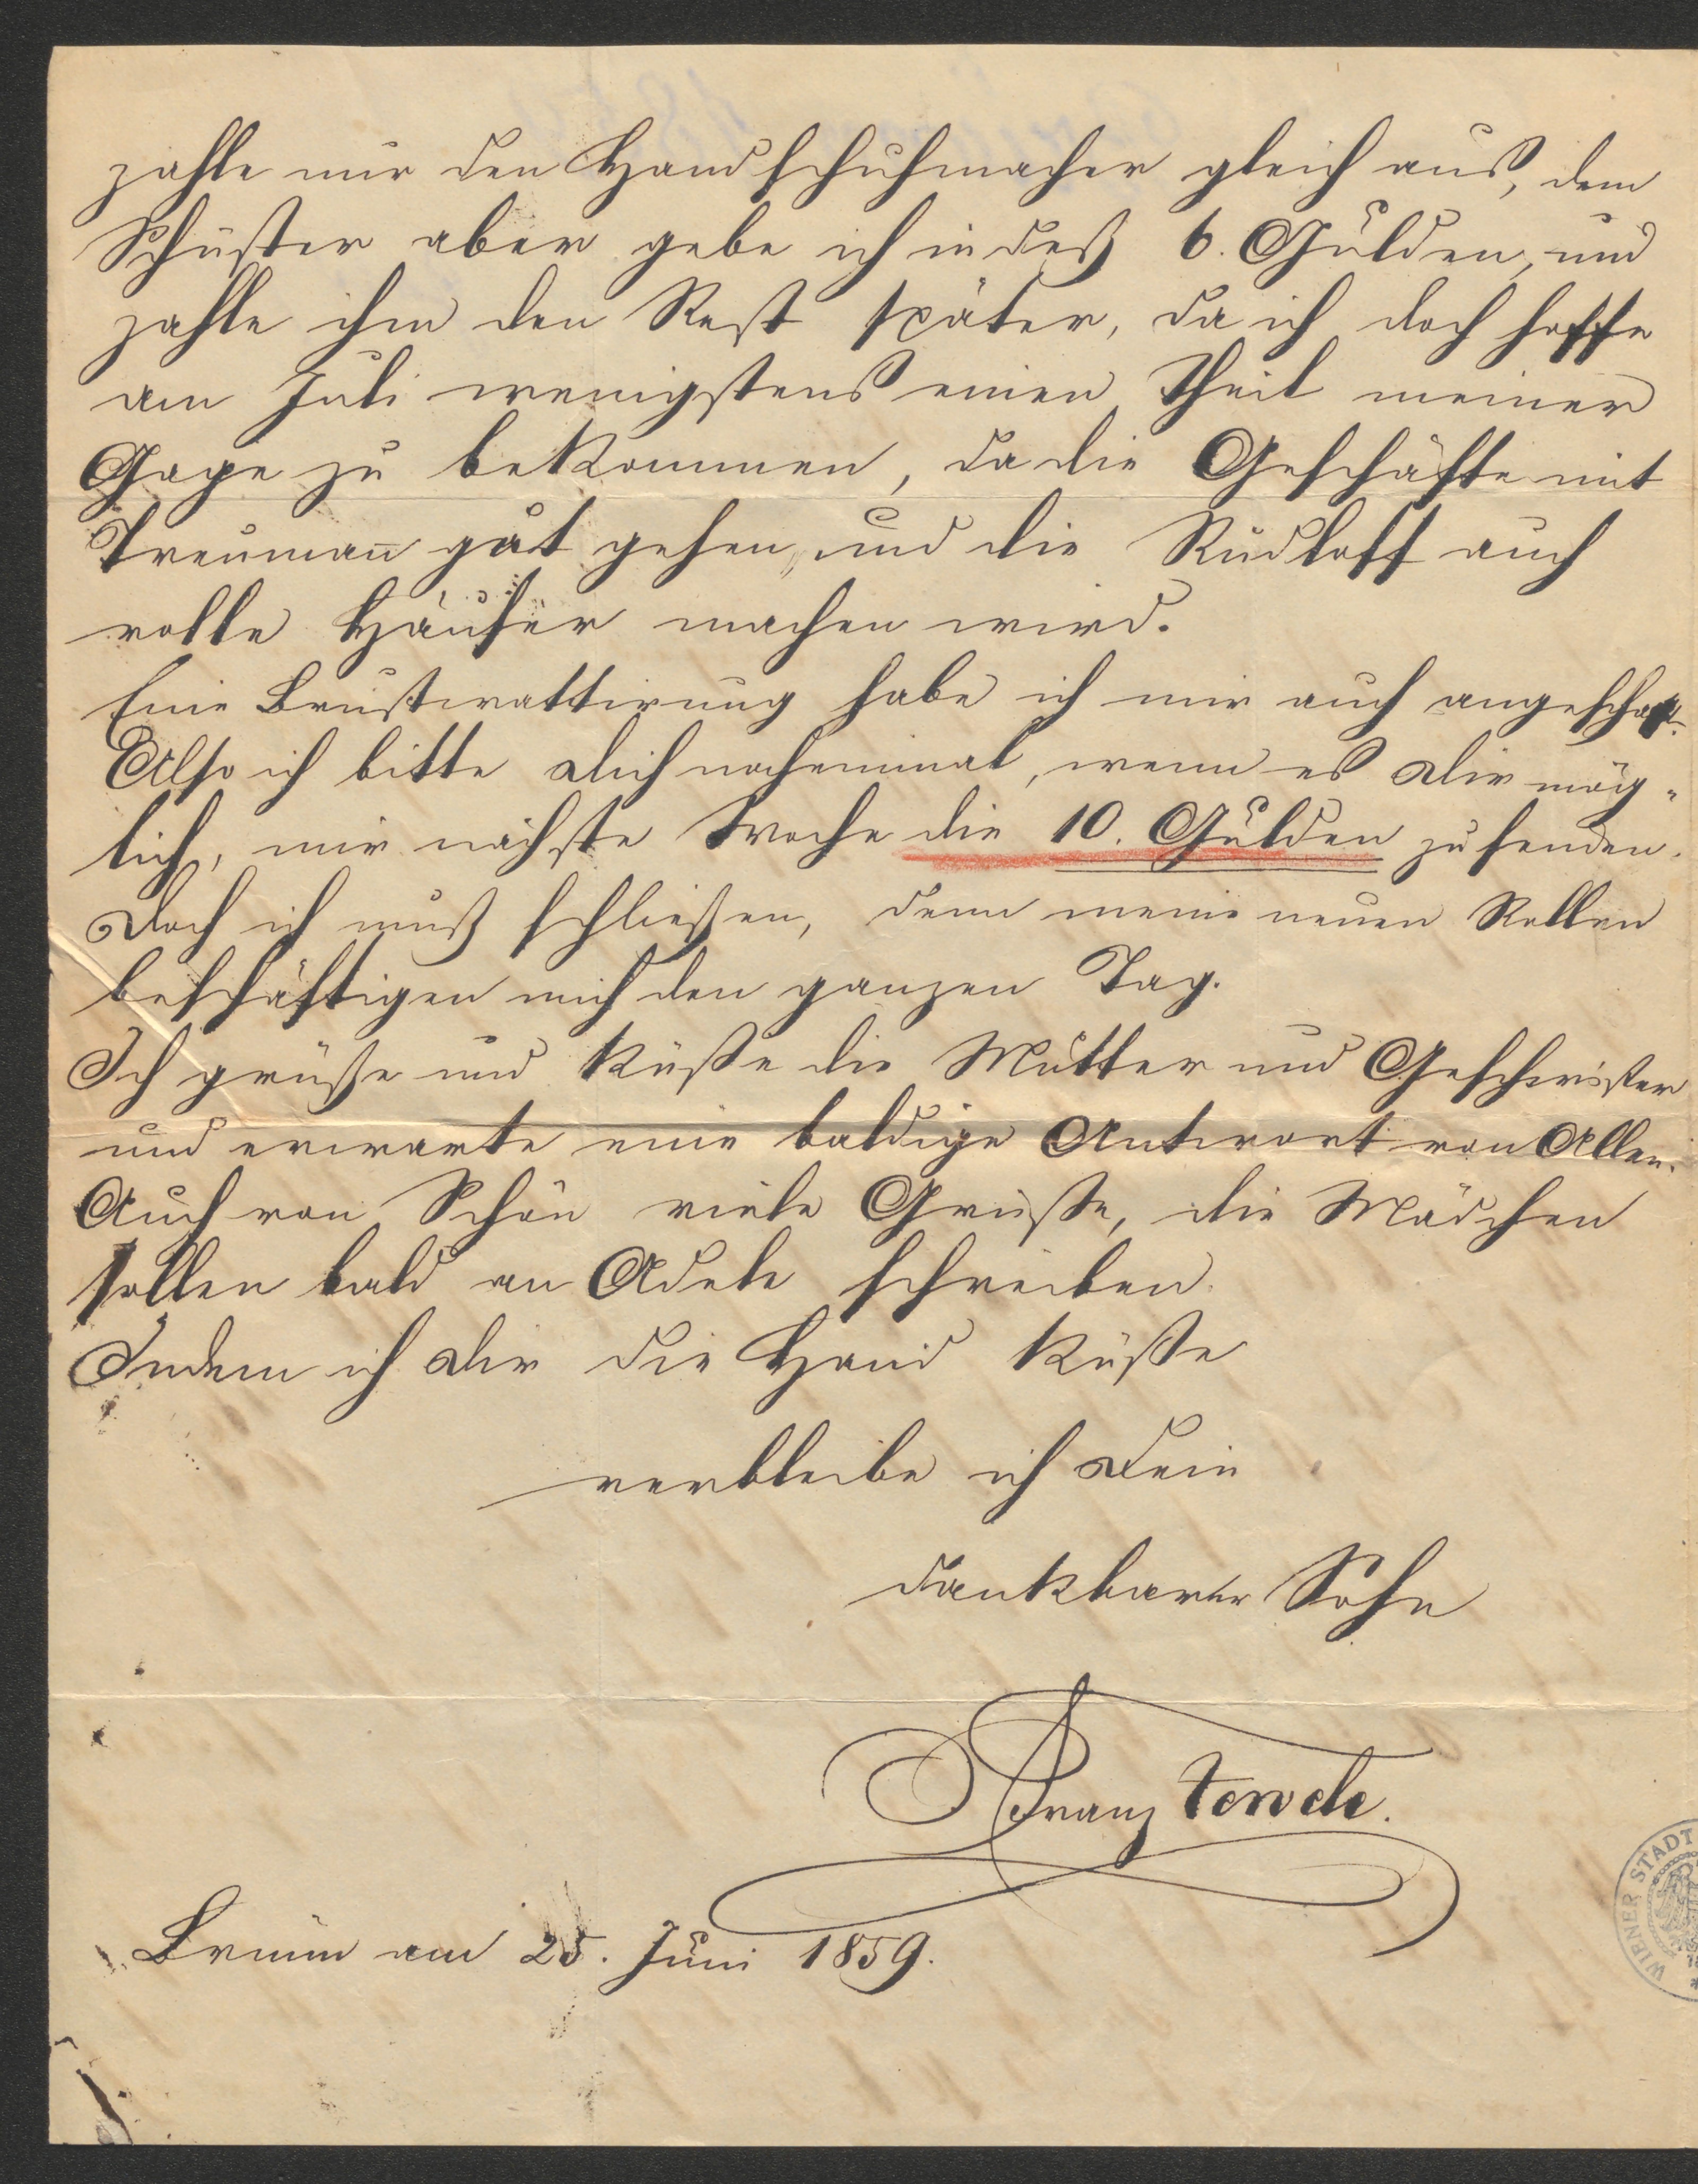 zahle nur den Handschuhmacher gleich aus, dem
Schuster aber gebe ich indeß 6. Gulden, und
zahle ihm den Rest später, da ich doch hoffe
am Juli wenigstens einen Theil meiner
Gage zu bekommen, da die Geschäfte mit
Treumañ gut gehen, und die Rudloff auch
volle Häuser machen wird.
Eine Brustwattirung habe ich mir auch angeschafft.
Also ich bitte dich nocheinmal, wenn es dir mög-
lich, mir nächste Woche die 10. Gulden zu senden.
Doch ich muß schließen, denn meine neuen Rollen
beschäftigen mich den ganzen Tag.
Ich grüße und küße die Mutter und Geschwister
und erwarte eine baldige Antwort von Allen.
Auch von Schön viele Grüße, die Mädchen
sollen bald an Adele schreiben.
Indem ich dir die Hand küße
verbleibe ich Dein
dankbarer Sohn
Franz
Brünn am 25. Juni 1859.
WIENER STADT